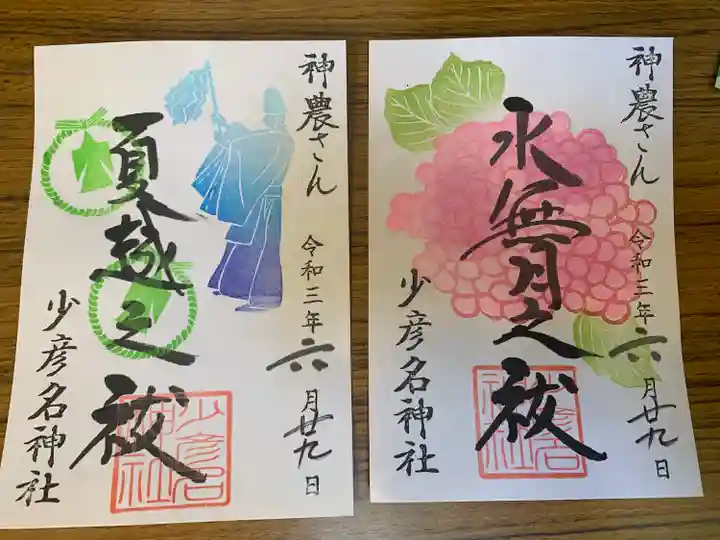 神農さん
令和三年六月廿九日
夏越之祓
少彦名神社
少彦名神社
神農さん
令和三年六月廿九日
水無月之祓
少彦名神社
少彦名神社